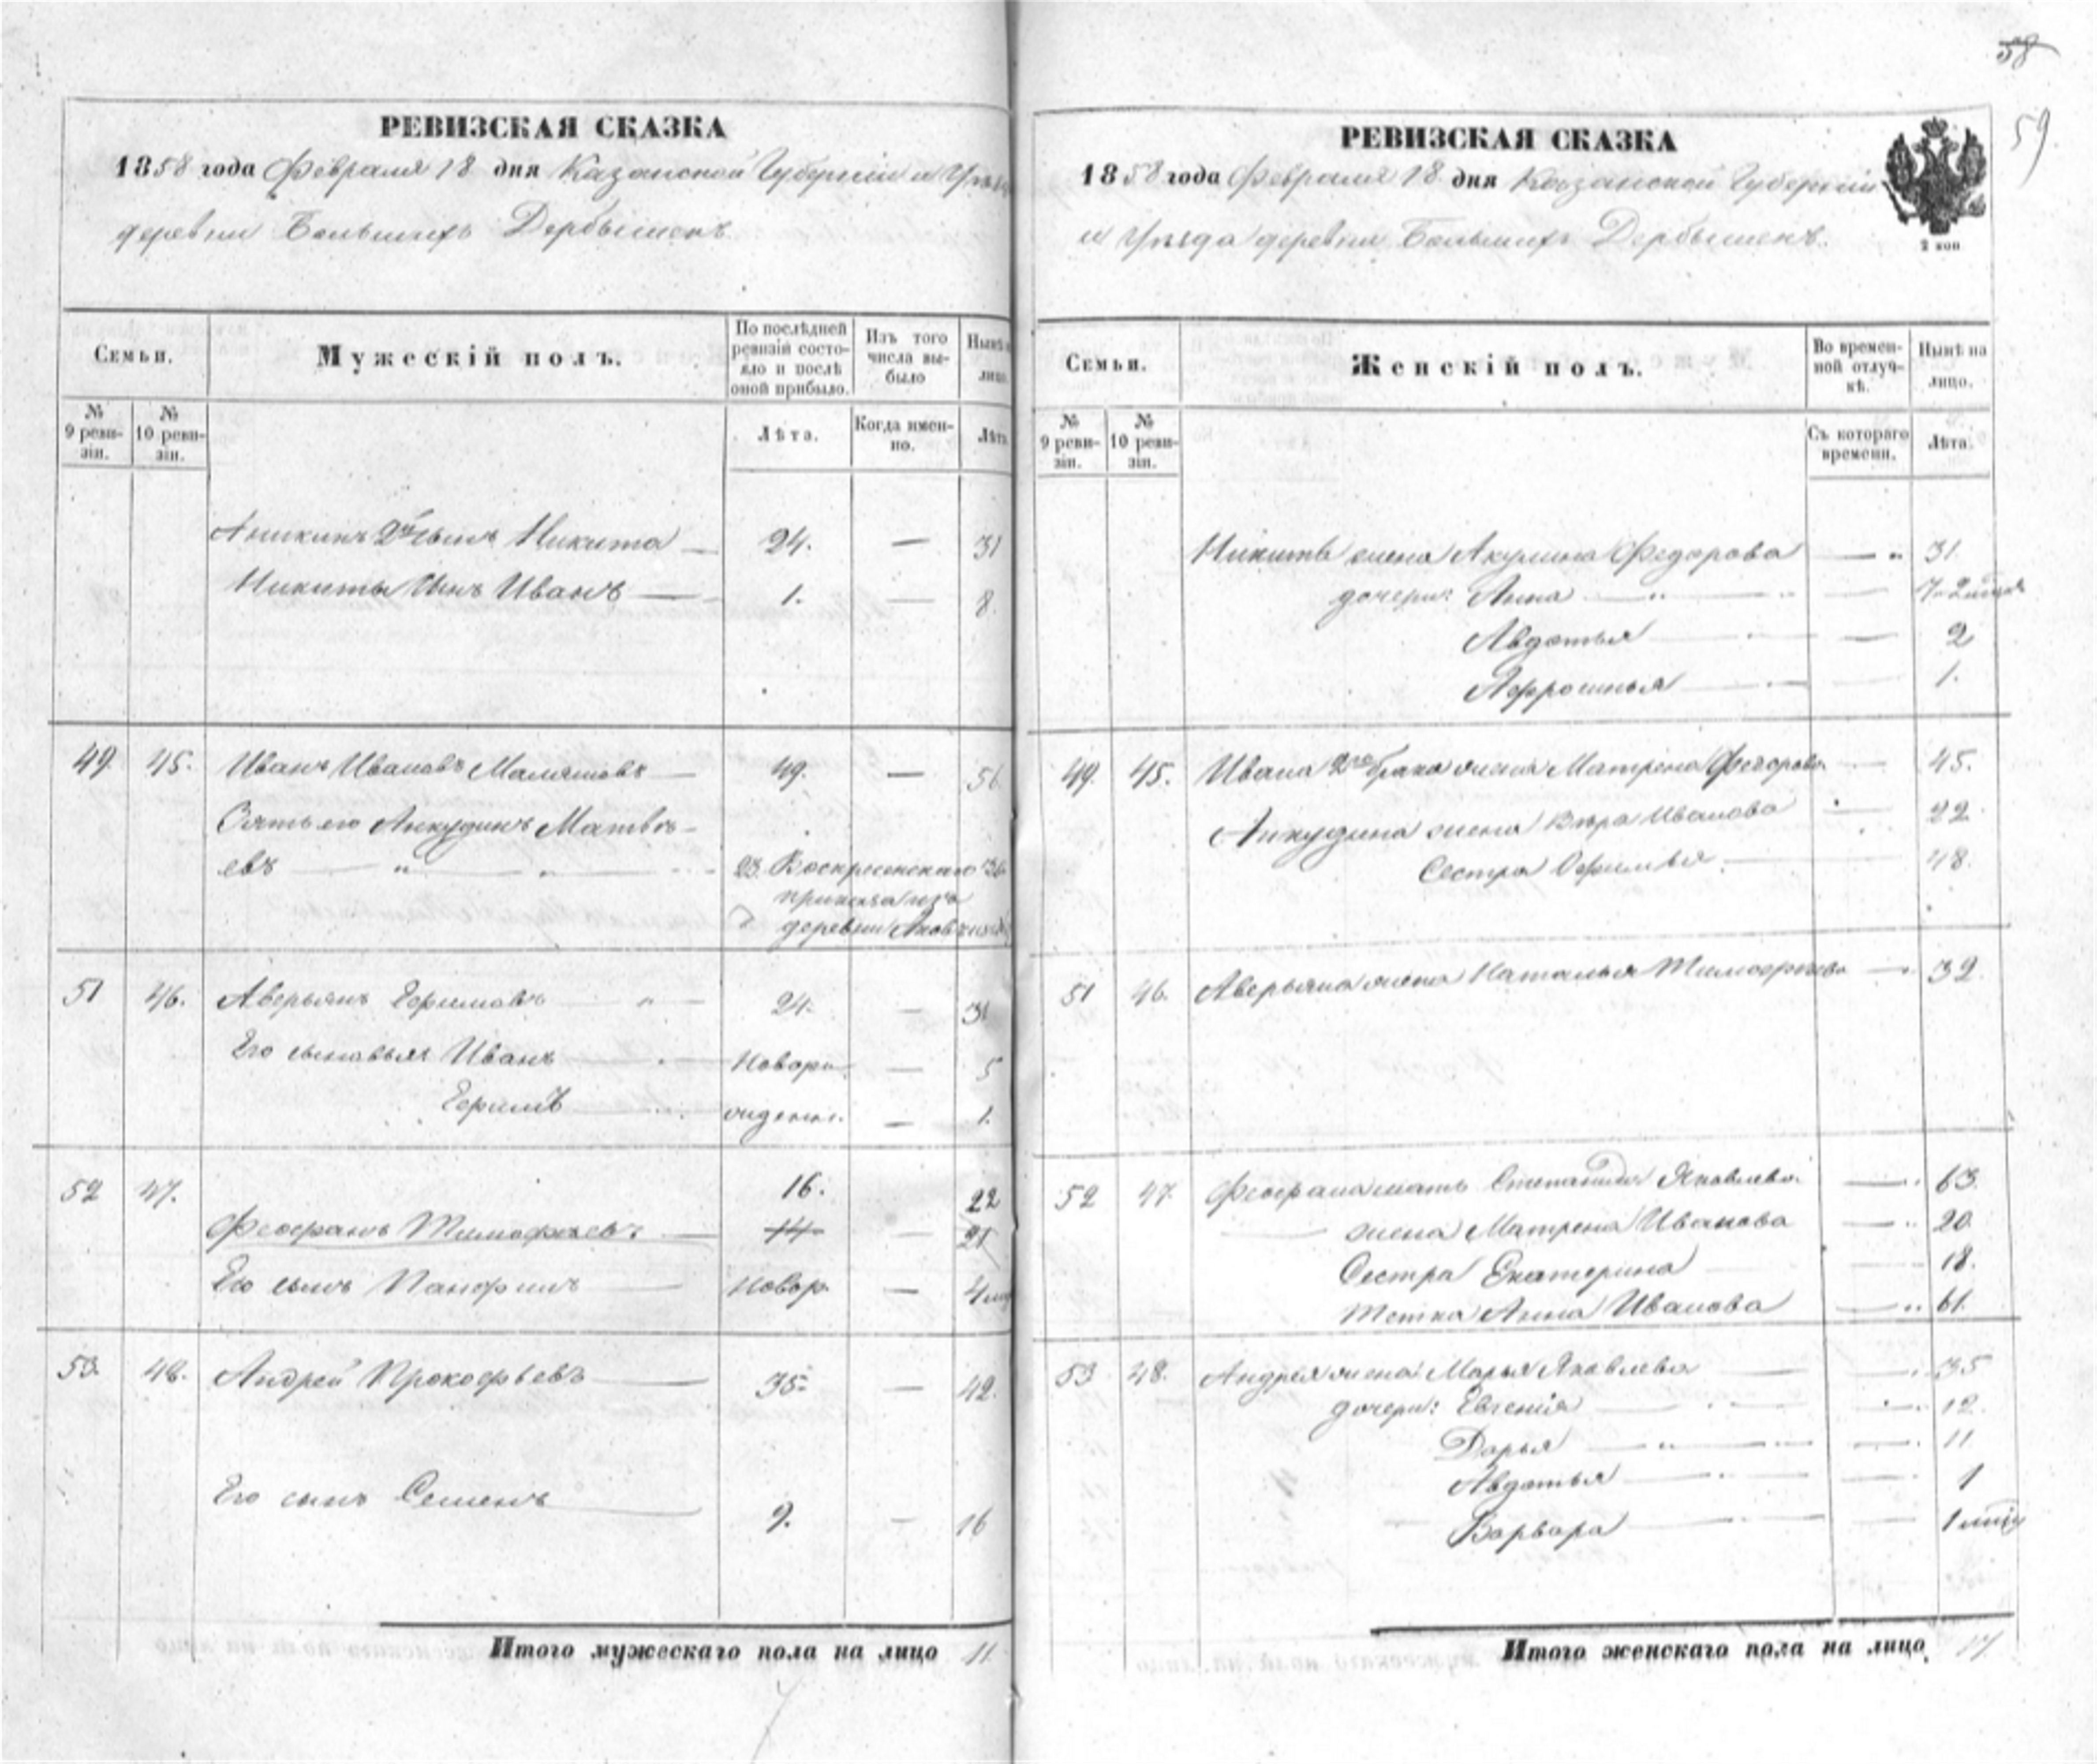 58
59.
РЕВИЗСКАЯ СКАЗКА
1858 года Февраля 18 дня Казанской Губерніи и Уѣзда
деревни Большихъ Дербышекъ
Семьи.
Мужескій полъ.
По послѣдней ревизіи состояло и послѣ оной прибыло.
Изъ того числа выбыло
Нынѣ лицо.
№ 9 ревизіи.
№ 10 ревизіи.
Лѣта.
Когда именно.
Лѣта
2й сынъ Никита — 24. — 31
Никиты сынъ Иванъ — 1. — 8.
49. 45. Иванъ Ивановъ — 49. — 56
Зять его Анкудинъ Матвѣ-
евъ — 23. Воскресенскаго 30
прихода изъ
деревни
51 46. Аверьянъ Ефимовъ — 24. — 31
Его сыновья Иванъ — Новоро — 5
Ефимъ — жденн. — 1.
52 47. 16. 22
Феофанъ Тимофѣевъ — 14 — 21
Его сынъ Панфилъ — Новор — 4 мѣ
53. 48. Андрей Прокофьевъ — 35. — 42.
Его сынъ Семенъ — 9. — 16
Итого мужескаго пола на лицо 11
РЕВИЗСКАЯ СКАЗКА
1858 года Февраля 18 дня Казанской Губерніи
и Уѣзда деревни Большихъ Дербышекъ.
2 коп
Семьи.
Женскій полъ.
Во временной отлучкѣ.
Нынѣ на лицо.
№ 9 ревизіи.
№ 10 ревизіи.
Съ котораго времени.
Лѣта.
Никиты жена Акулина Федорова — 31.
дочери: Анна —
Авдотья — 2
Афросинья — 1.
49. 45. Ивана 2го брака жена Матрена Федорова — 45.
Анкудина жена Вѣра Иванова — 22.
Сестра Офимья — 48.
51 46. Аверьяна жена Наталья Тимофѣева — 32.
52 47 Феофана мать Степанида Яковлева — 63.
— жена Матрена Иванова — 20
Сестра Екатерина — 18.
Тетка Анна Иванова — 61.
53 48. Андрея жена Марья Яковлева — 35
дочери: Евгенія — 12.
Дарья — 11
Авдотья — 1
Варвара — 1 мѣся
Итого женскаго пола на лицо 17